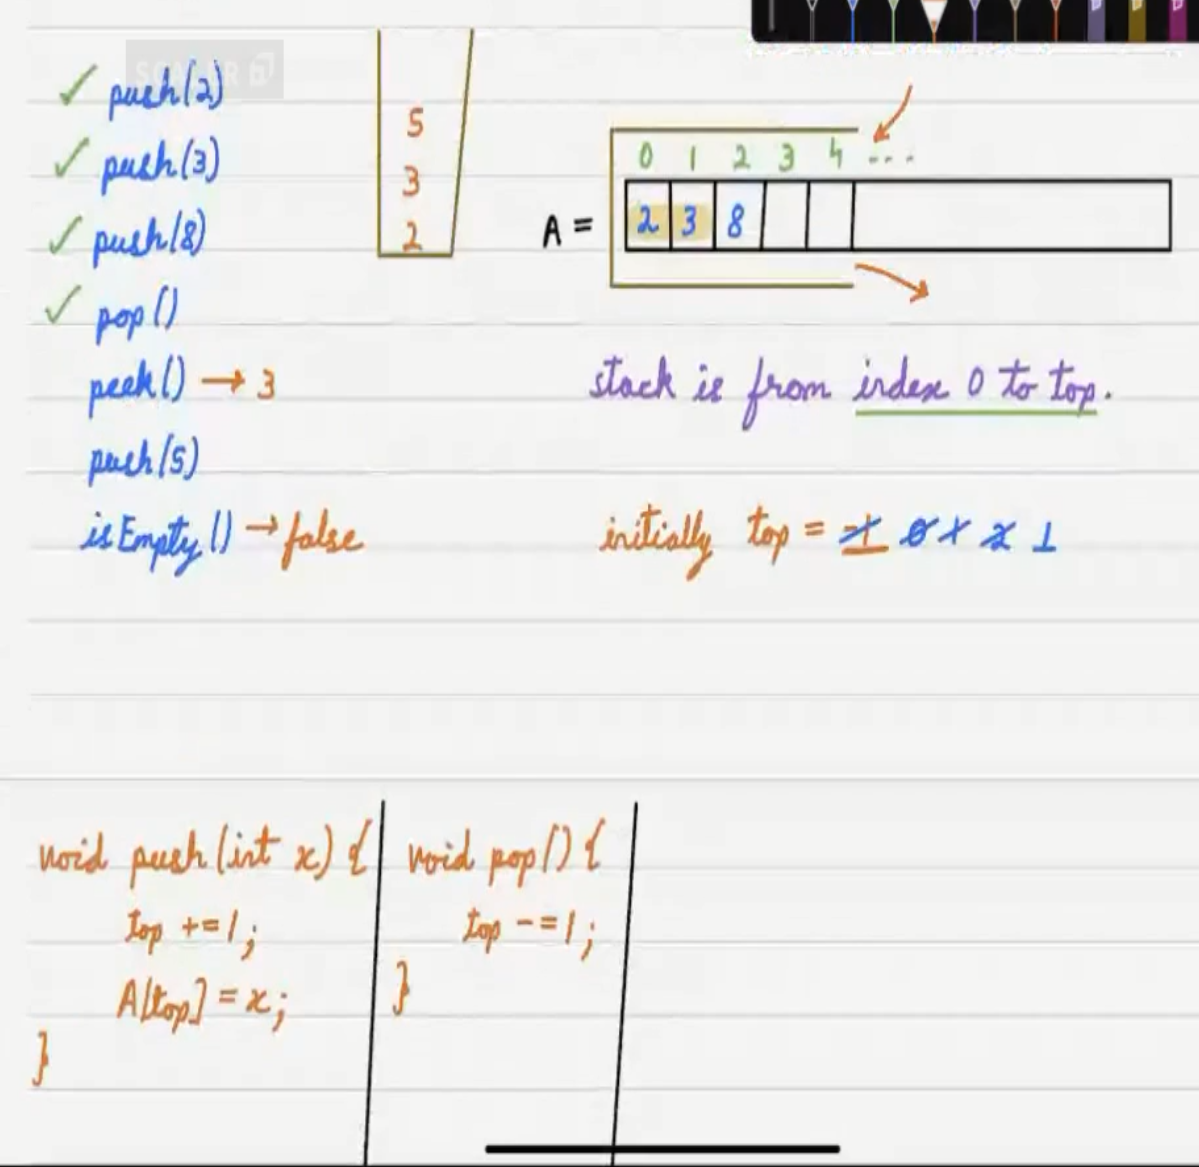 SCALER
✓ push(2)
✓ push(3)
✓ push(8)
✓ pop()
peek() → 3
push(5)
isEmpty() → false
5
3
2
0 1 2 3 4 ...
A = 2 3 8
stack is from index 0 to top.
initially top = -1 0 1 2 1
void push(int x) {
top += 1;
A[top] = x;
}
void pop() {
top -= 1;
}